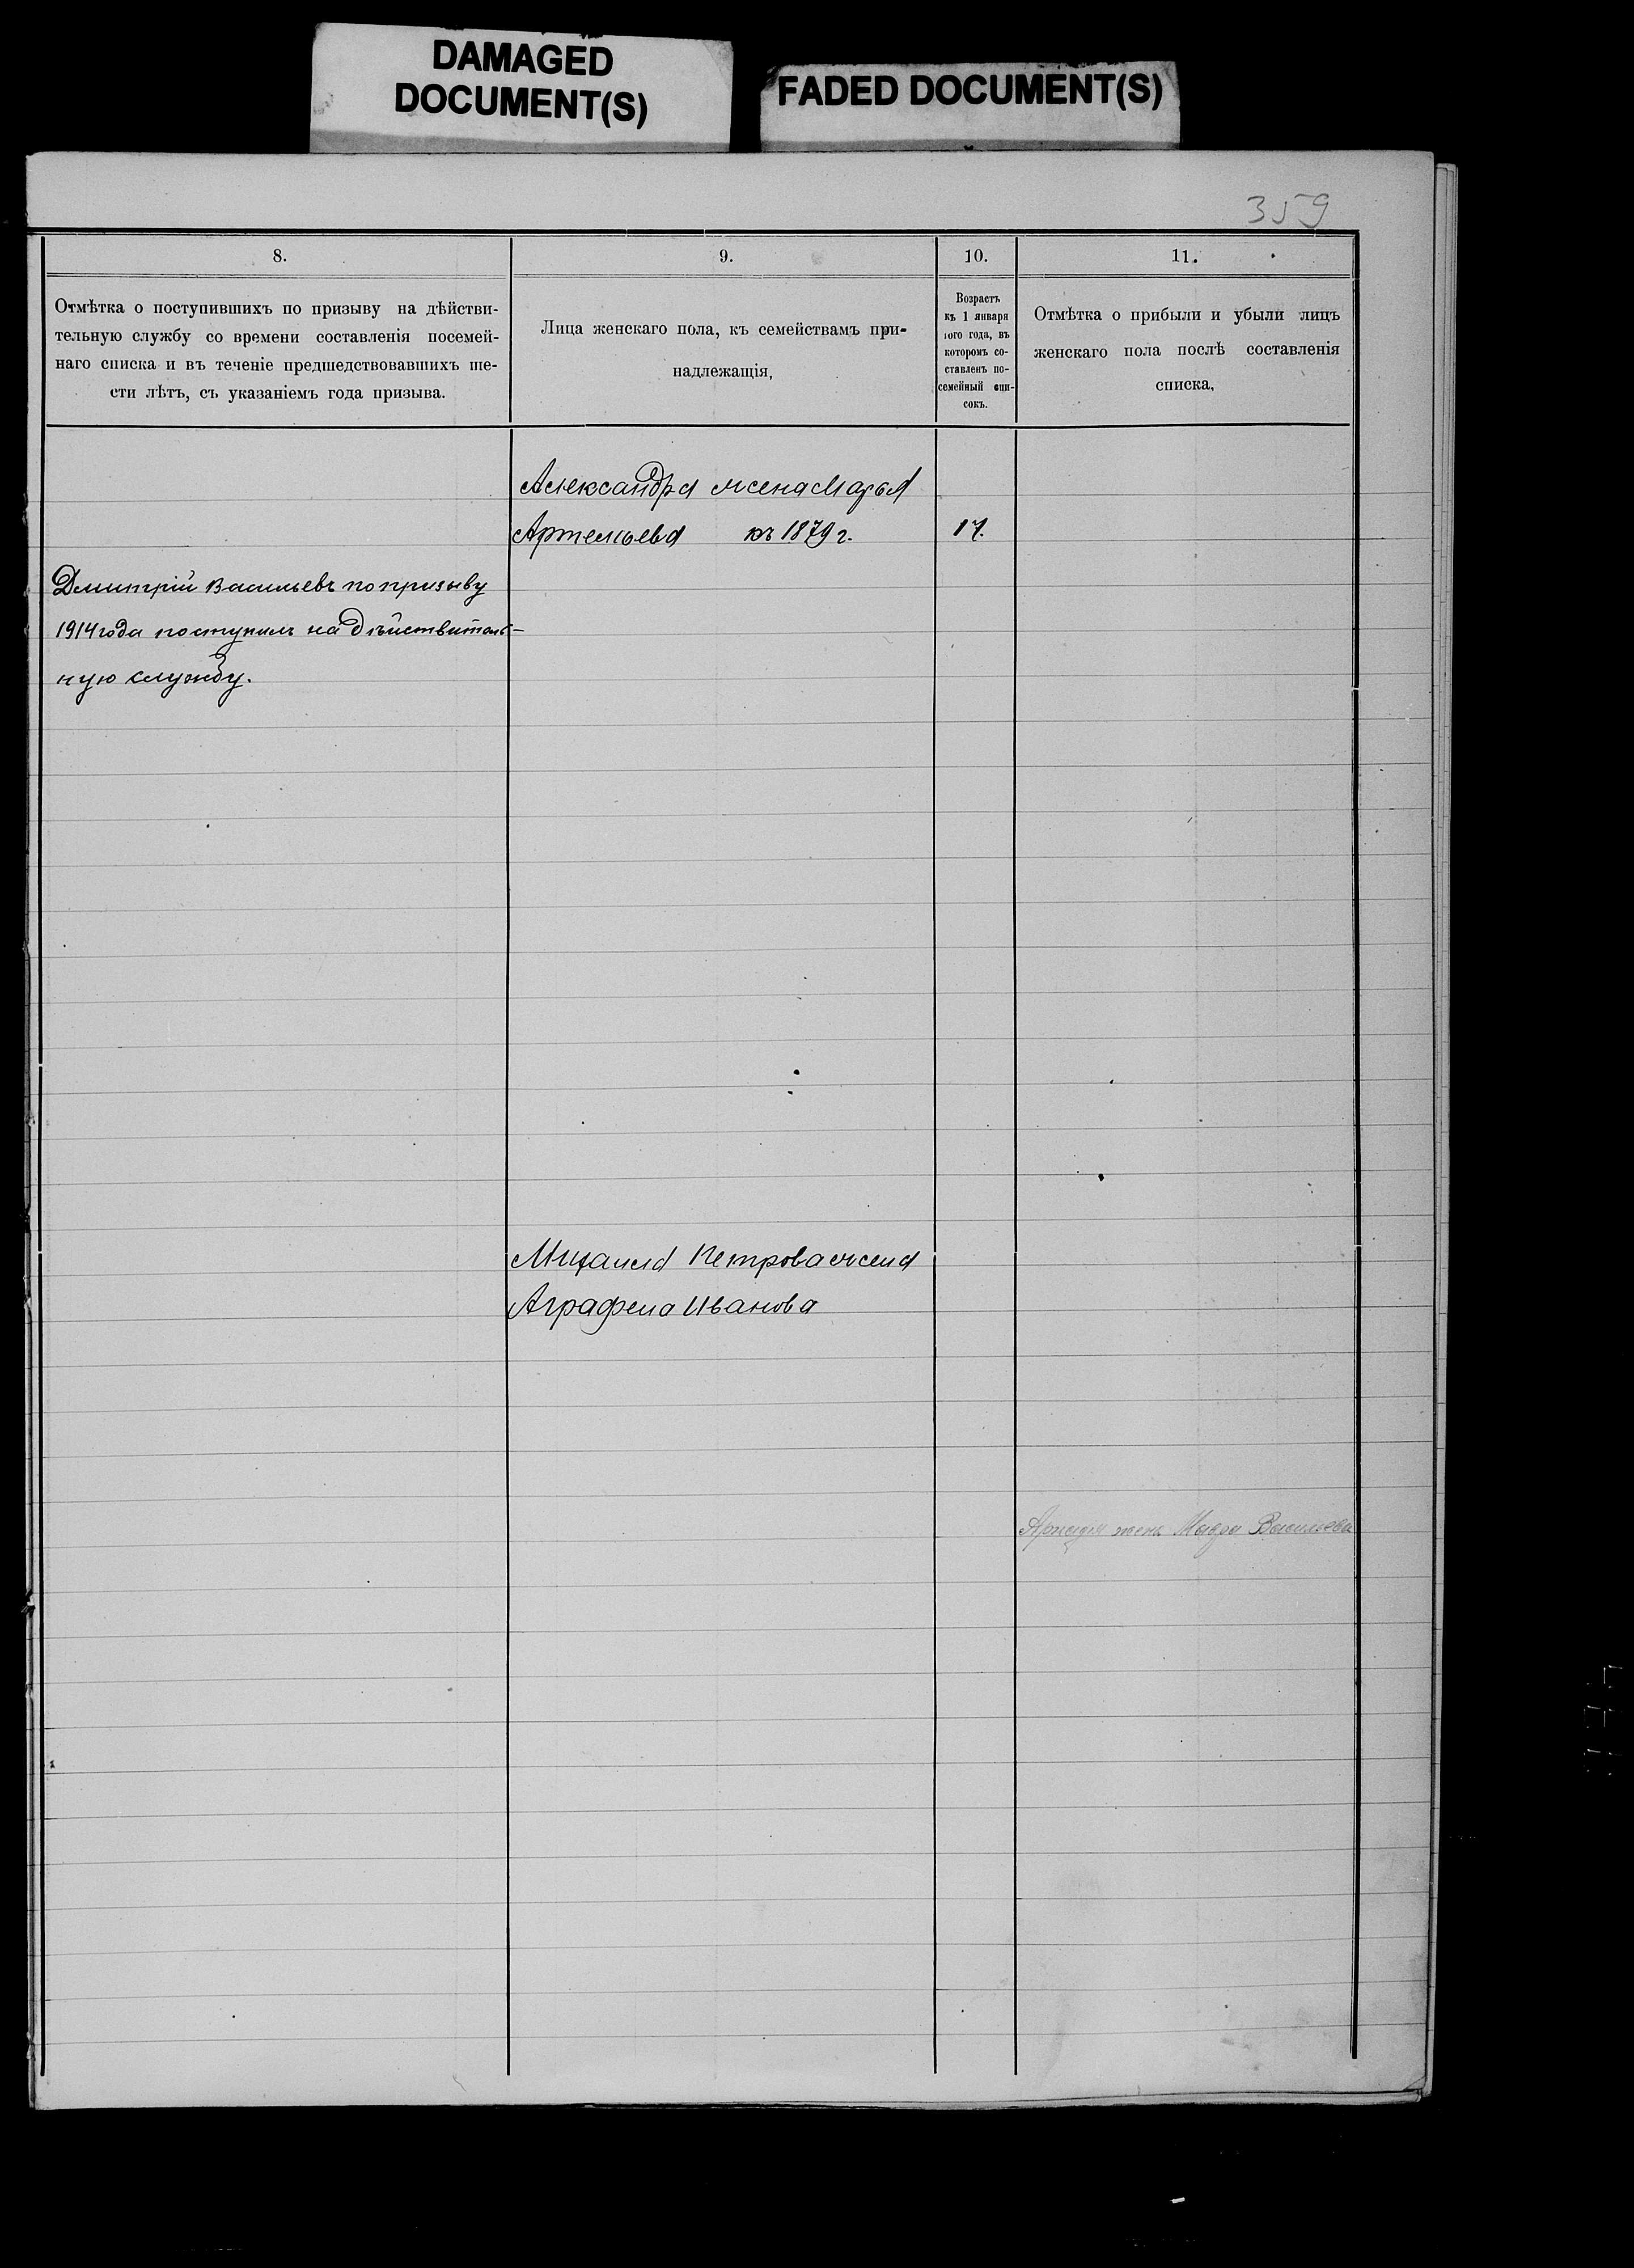 DAMAGED
DOCUMENT(S)
FADED DOCUMENT(S)
359
8.
9.
10.
11.
Отмѣтка о поступившихъ по призыву на дѣйстви-
тельную службу со времени составленія посемей-
наго списка и въ теченіе предшедствовавшихъ ше-
сти лѣтъ, съ указаніемъ года призыва.
Лица женскаго пола, къ семействамъ при-
надлежащія,
Возрастъ
къ 1 января
того года, въ
которомъ со-
ставленъ по-
семейный спи-
сокъ.
Отмѣтка о прибыли и убыли лицъ
женскаго пола послѣ составленія
списка,
Александра жена Марья
Артемьева къ 1879 г.
17.
Дмитрій Васильевъ по призыву
1914 года поступилъ на дѣйствитель-
ную службу.
Михаила Петрова жена
Аграфена Иванова
жена Васильева